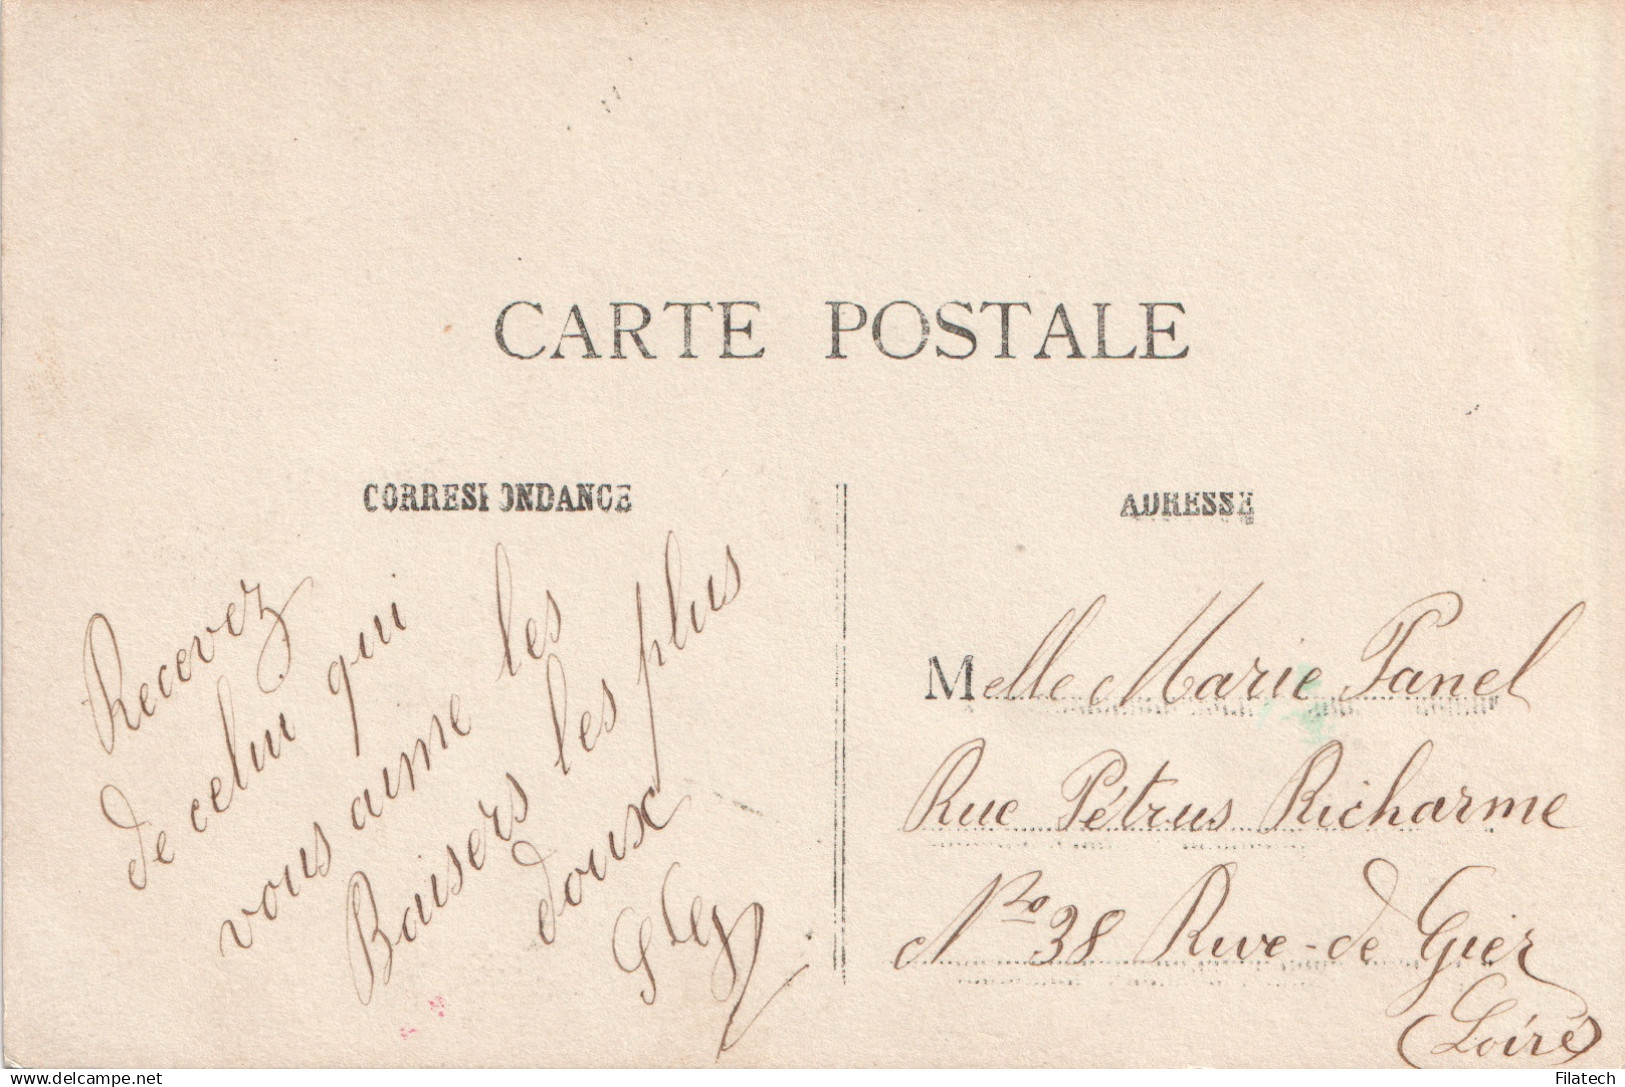 CARTE POSTALE
CORRESPONDANCE
ADRESSE
Recevez
de celui qui
vous aime les
Baisers les plus
doux
Melle Marie Panel
Rue Pétrus Richarme
No 38 Rive-de Gier
(Loire)
Filatech